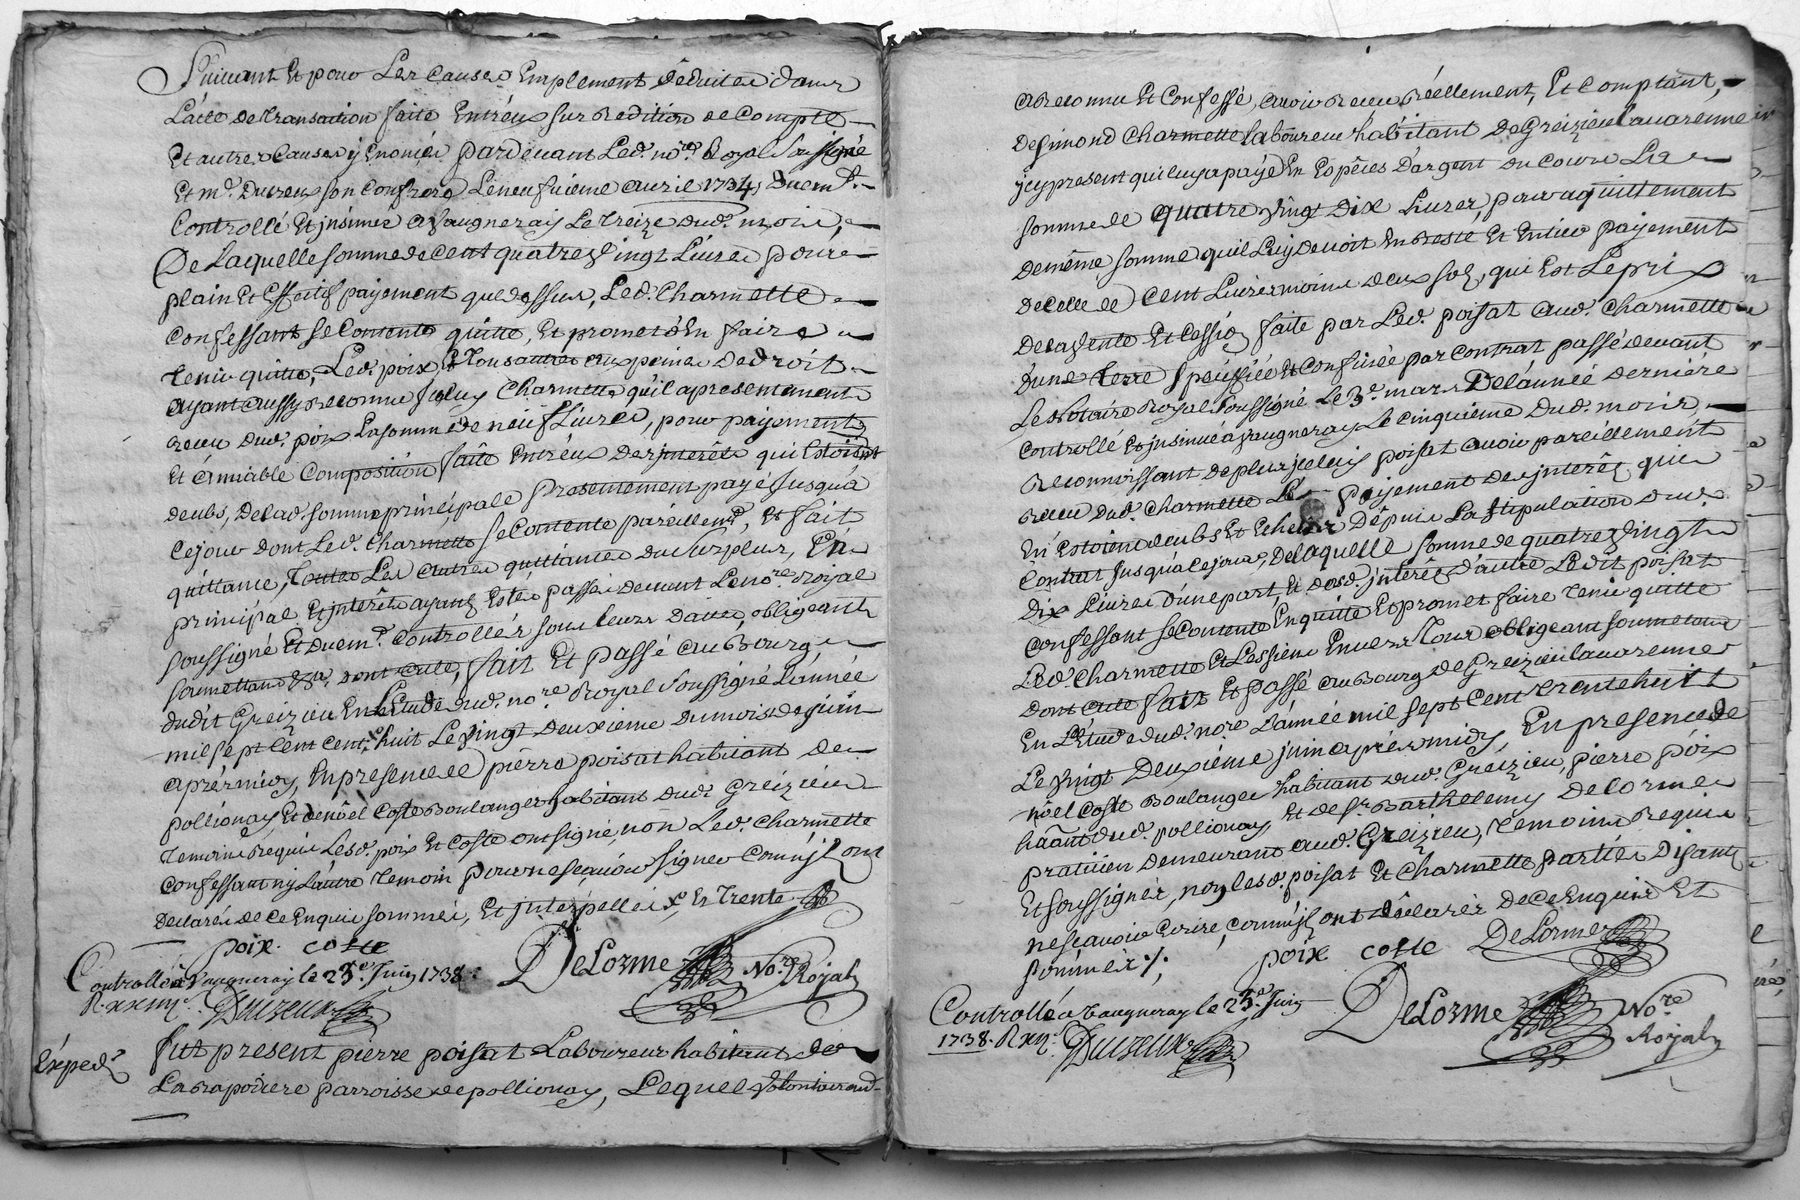 Suivant Et pour Les Causes Emplement dêduites dans
L'acte de transaction faite Entréux sur Redition de Compte
Et autres Causes y Enoncéés pardevant Led. no.re Royal soussigné
Et m.e Duvreux son Confrere Le neufvieme avril 1734, Duem.t
Controllé Et jnsinué a Vaugneray Le treize dud. mois,
De Laquelle somme de cent quatre vingt Livres pour
plain Et Effectif payement que dessus, Led. Charmette
Confessant se Contente quitte, Et promet d'En faire
tenir quitte, Led. poix Et tous autres aux peines De droit
ayant aussy Reconnu jceluy Charmette qu'il a presentement
receu dud. poix La somme de neuf Livres, pour payement
Et âmiablé Composition faite Entréux des jnterêts qui Estoient
deubs, de Lad. somme principale presentement payé jusqu'à
Ce jour dont Led. Charmette se Contente pareillem.t, Et fait
quittance, toutes Les autres quittances du surplus, En
principal Et jnterêts ayant Estées passées devant Le no.re Royal
soussigné Et Duem.t Controllés sous leurs dattes, obligeant
soumettant &a. dont acte, fait Et passé au Bourg
dudit Greizieu En L'Etude dud. no.re Royal soussigné L'année
mil sept Cent trente huit Le Vingt deuxieme du mois de juin
apres midy, En presence de pierre poisat habitant de
pollionay Et de nöel Coste Boulanger habitant dud. Greizieu
temoins Requis Lesd. poix Et Coste ont signé, non Led. Charmette
Confessant ny L'autre temoin pour ne sçavoir signer Comm'jls ont
Declarés de ce Enquis sommés, Et jnterpellés x Et trente
poix coste
Controllé a Vaugneray le 23.e Juin 1738.
DeLorme No.re Royal
Duvreux
Expedé
fut present pierre poisat Laboureur habitant de
La Rapodiere parroisse de pollionay, Lequel Volontairem.t
a Reconnu Et Confessé, avoir Receu Réellement, Et Comptant,
de simond Charmette Laboureur habitant De Greizieu La varenne
jcy present qui luy a payé En Espêces D'argent du Cours La
somme de quatre vingt Dix Livres, pour aquittement
de même somme qu'il Luy devoit En Reste Et Entier payement
de celle de Cent Livres moins deux sols, qui Est Le prix
De La Vente Et Cession faite par Led. poisat aud. Charmette
D'une terre speciffiée Et Confinée par Contrat passé devant
Le Notaire Royal soussigné Le 3.e mars De L'année derniére
Controllé Et jnsinué a Vaugneray Le Cinquiéme dud. mois,
Reconnoissant de plus jceluy poisat avoir pareillement
Receu dud. Charmette Le payement des jnterêts que
En Estoient deubs Et Echeus Dêpuis La stipulation dud.
Contrat jusqu'à Ce jour, De Laquelle somme de quatre vingt
Dix Livres d'une part, Et desd. jnterêts d'autre Ledit poisat
Confessant se Contente En quitte Et promet faire tenir quitte
Led. Charmette Et Les siens Envers tous obligeant soumettant
Dont acte fait Et passé au Bourg de Greizieu La varenne
En L'Etude dud. no.re L'année mil sept Cent trente huit
Le Vingt Deuxiéme juin aprés midy, En presence de
nöel Coste Boulanger habitant dud. Greizieu, pierre poix
habitant dud. pollionay Et de s.r Barthelemy Delorme
praticien Demeurant aud. Greizieu, temoins Requis
Et soussignés, non Lesd. poisat Et Charmette parties Disants
ne sçavoir Ecrire, comm'jls ont déclarés de ce Enquis Et
sommés ./.
poix coste DeLorme
Controllé a Vaugneray le 23.e Juin
1738.
DeLorme No.re
Royal
Duvreux